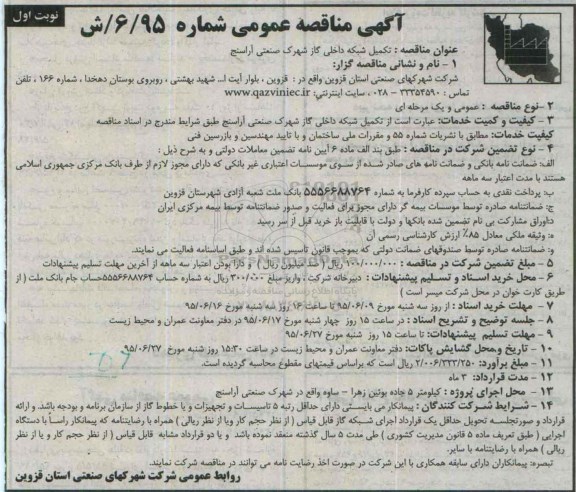 نوبت اول
آگهی مناقصه عمومی شماره ۶/۹۵/ش
عنوان مناقصه : تکمیل شبکه داخلی گاز شهرک صنعتی آراسنج
۱ - نام و نشانی مناقصه گزار:
شرکت شهرکهای صنعتی استان قزوین واقع در : قزوین ، بلوار آیت ا... شهید بهشتی ، روبروی بوستان دهخدا ، شماره ۱۶۶ ، تلفن
تماس : ۳۳۳۵۴۵۹۰ - ۰۲۸ ، سایت اینترنتی: www.qazviniec.ir
۲ - نوع مناقصه : عمومی و یک مرحله ای
۳ - کیفیت و کمیت خدمات: عبارت است از تکمیل شبکه داخلی گاز شهرک صنعتی آراسنج طبق شرایط مندرج در اسناد مناقصه
کیفیت خدمات: مطابق با نشریات شماره ۵۵ و مقررات ملی ساختمان و با تایید مهندسین و بازرسین فنی
۴ - نوع تضمین شرکت در مناقصه : طبق بند الف ماده ۶ آیین نامه تضمین معاملات دولتی و به شرح ذیل :
الف: ضمانت نامه بانکی و ضمانت نامه های صادر شده از سوی موسسات اعتباری غیر بانکی که دارای مجوز لازم از طرف بانک مرکزی جمهوری اسلامی
هستند با مدت اعتبار سه ماهه
ب: پرداخت نقدی به حساب سپرده کارفرما به شماره ۵۵۵۶۶۸۸۷۶۴ بانک ملت شعبه آزادی شهرستان قزوین
ج: ضمانتنامه صادره توسط موسسات بیمه گر دارای مجوز برای فعالیت و صدور ضمانتنامه توسط بیمه مرکزی ایران
د: اوراق مشارکت بی نام تضمین شده بانکها و دولت با قابلیت باز خرید قبل از سر رسید
ه: وثیقه ملکی معادل ۸۵٪ ارزش کارشناسی رسمی آن
و: ضمانتنامه صادره توسط صندوقهای ضمانت دولتی که بموجب قانون تاسیس شده اند و طبق اساسنامه فعالیت می نمایند.
۵ - مبلغ تضمین شرکت در مناقصه : ۱۰۰/۰۰۰/۰۰۰ ریال ( صد میلیون ریال ) و دارا بودن اعتبار سه ماهه از آخرین مهلت تسلیم پیشنهادات
۶ - محل خرید اسناد و تسلیم پیشنهادات : دبیرخانه شرکت ، واریز مبلغ ۳۰۰/۰۰۰ ریال به شماره حساب ۵۵۵۶۶۸۸۷۶۴ حساب جام بانک ملت ( از
طریق کارت خوان در محل شرکت میسر است )
۷ - مهلت خرید اسناد : از روز سه شنبه مورخ ۹۵/۰۶/۰۹ تا ساعت ۱۶ روز سه شنبه مورخ ۹۵/۰۶/۱۶
۸ - جلسه توضیح و تشریح اسناد : در ساعت ۱۵ روز چهار شنبه مورخ ۹۵/۰۶/۱۷ در دفتر معاونت عمران و محیط زیست
۹ - مهلت تسلیم پیشنهادات: تا ساعت ۱۵ روز شنبه مورخ ۹۵/۰۶/۲۷
۱۰ - تاریخ و محل گشایش پاکات: دفتر معاونت عمران و محیط زیست در ساعت ۱۵:۳۰ روز شنبه مورخ ۹۵/۰۶/۲۷
۱۱ - مبلغ برآورد: ۲/۰۰۶/۳۳۳/۲۵۰ ریال است که براساس قیمتهای مقطوع محاسبه گردیده است.
۱۲ - مدت قرارداد: ۳ ماه
۱۳ - محل اجرای پروژه : کیلومتر ۵ جاده بوئین زهرا - ساوه واقع در شهرک صنعتی آراسنج
۱۴ - شرایط شرکت کنندگان : پیمانکار می بایستی دارای حداقل رتبه ۵ تاسیسات و تجهیزات و یا خطوط گاز از سازمان برنامه و بودجه باشد. و ارائه
قرارداد و صورتجلسه تحویل حداقل یک قرارداد اجرای شبکه گاز قابل قیاس ( از نظر حجم کار ویا از نظر ریالی ) همراه با رضایتنامه که پیمانکار راساً با دستگاه
اجرایی ( طبق تعریف ماده ۵ قانون مدیریت کشوری ) طی مدت ۵ سال گذشته منعقد نموده باشد و یا دو قرارداد مشابه قابل قیاس ( از نظر حجم کار و یا از نظر
ریالی ) همراه با رضایتنامه با سایر.
تبصره: پیمانکاران دارای سابقه همکاری با این شرکت در صورت اخذ رضایت نامه می توانند در مناقصه شرکت نمایند.
روابط عمومی شرکت شهرکهای صنعتی استان قزوین